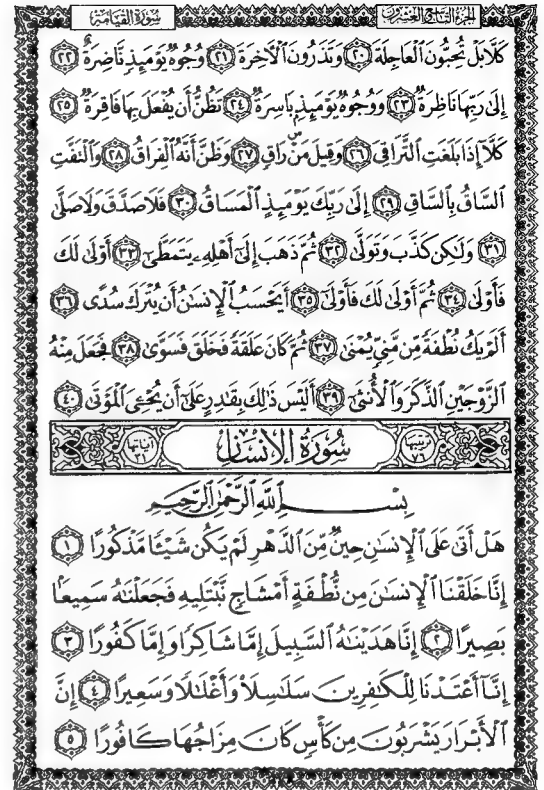 سُورَةُ القِيَامَةِ الجزءُ التَّاسِعُ وَالعِشْرُونَ
كَلَّا بَلْ تُحِبُّونَ الْعَاجِلَةَ ٢٠ وَتَذَرُونَ الْآخِرَةَ ٢١ وُجُوهٌ يَوْمَئِذٍ نَّاضِرَةٌ ٢٢
إِلَىٰ رَبِّهَا نَاظِرَةٌ ٢٣ وَوُجُوهٌ يَوْمَئِذٍ بَاسِرَةٌ ٢٤ تَظُنُّ أَن يُفْعَلَ بِهَا فَاقِرَةٌ ٢٥
كَلَّا إِذَا بَلَغَتِ التَّرَاقِيَ ٢٦ وَقِيلَ مَنْ ۜ رَاقٍ ٢٧ وَظَنَّ أَنَّهُ الْفِرَاقُ ٢٨ وَالْتَفَّتِ
السَّاقُ بِالسَّاقِ ٢٩ إِلَىٰ رَبِّكَ يَوْمَئِذٍ الْمَسَاقُ ٣٠ فَلَا صَدَّقَ وَلَا صَلَّىٰ
٣١ وَلَٰكِن كَذَّبَ وَتَوَلَّىٰ ٣٢ ثُمَّ ذَهَبَ إِلَىٰ أَهْلِهِ يَتَمَطَّىٰ ٣٣ أَوْلَىٰ لَكَ
فَأَوْلَىٰ ٣٤ ثُمَّ أَوْلَىٰ لَكَ فَأَوْلَىٰ ٣٥ أَيَحْسَبُ الْإِنسَانُ أَن يُتْرَكَ سُدًى ٣٦
أَلَمْ يَكُ نُطْفَةً مِّن مَّنِيٍّ يُمْنَىٰ ٣٧ ثُمَّ كَانَ عَلَقَةً فَخَلَقَ فَسَوَّىٰ ٣٨ فَجَعَلَ مِنْهُ
الزَّوْجَيْنِ الذَّكَرَ وَالْأُنثَىٰ ٣٩ أَلَيْسَ ذَٰلِكَ بِقَادِرٍ عَلَىٰ أَن يُحْيِيَ الْمَوْتَىٰ ٤٠
ترتيبها ٧٦ سُورَةُ الإِنسَانِ آياتها ٣١
بِسْمِ اللَّهِ الرَّحْمَٰنِ الرَّحِيمِ
هَلْ أَتَىٰ عَلَى الْإِنسَٰنِ حِينٌ مِّنَ الدَّهْرِ لَمْ يَكُن شَيْئًا مَّذْكُورًا ١
إِنَّا خَلَقْنَا الْإِنسَٰنَ مِن نُّطْفَةٍ أَمْشَاجٍ نَّبْتَلِيهِ فَجَعَلْنَٰهُ سَمِيعًا
بَصِيرًا ٢ إِنَّا هَدَيْنَٰهُ السَّبِيلَ إِمَّا شَاكِرًا وَإِمَّا كَفُورًا ٣
إِنَّا أَعْتَدْنَا لِلْكَٰفِرِينَ سَلَٰسِلَا۟ وَأَغْلَٰلًا وَسَعِيرًا ٤ إِنَّ
الْأَبْرَارَ يَشْرَبُونَ مِن كَأْسٍ كَانَ مِزَاجُهَا كَافُورًا ٥